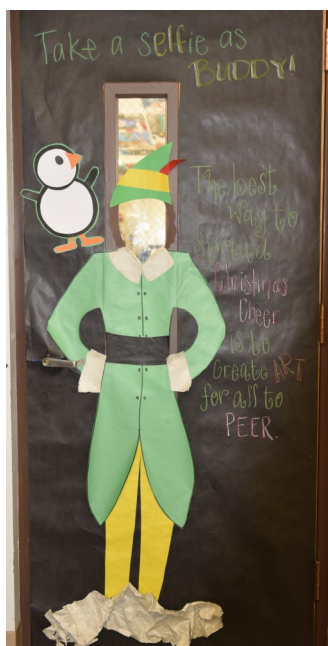 Take a selfie as
BUDDY!
The best
way to
spread
Christmas
Cheer
is to
Create ART
for all to
PEER.